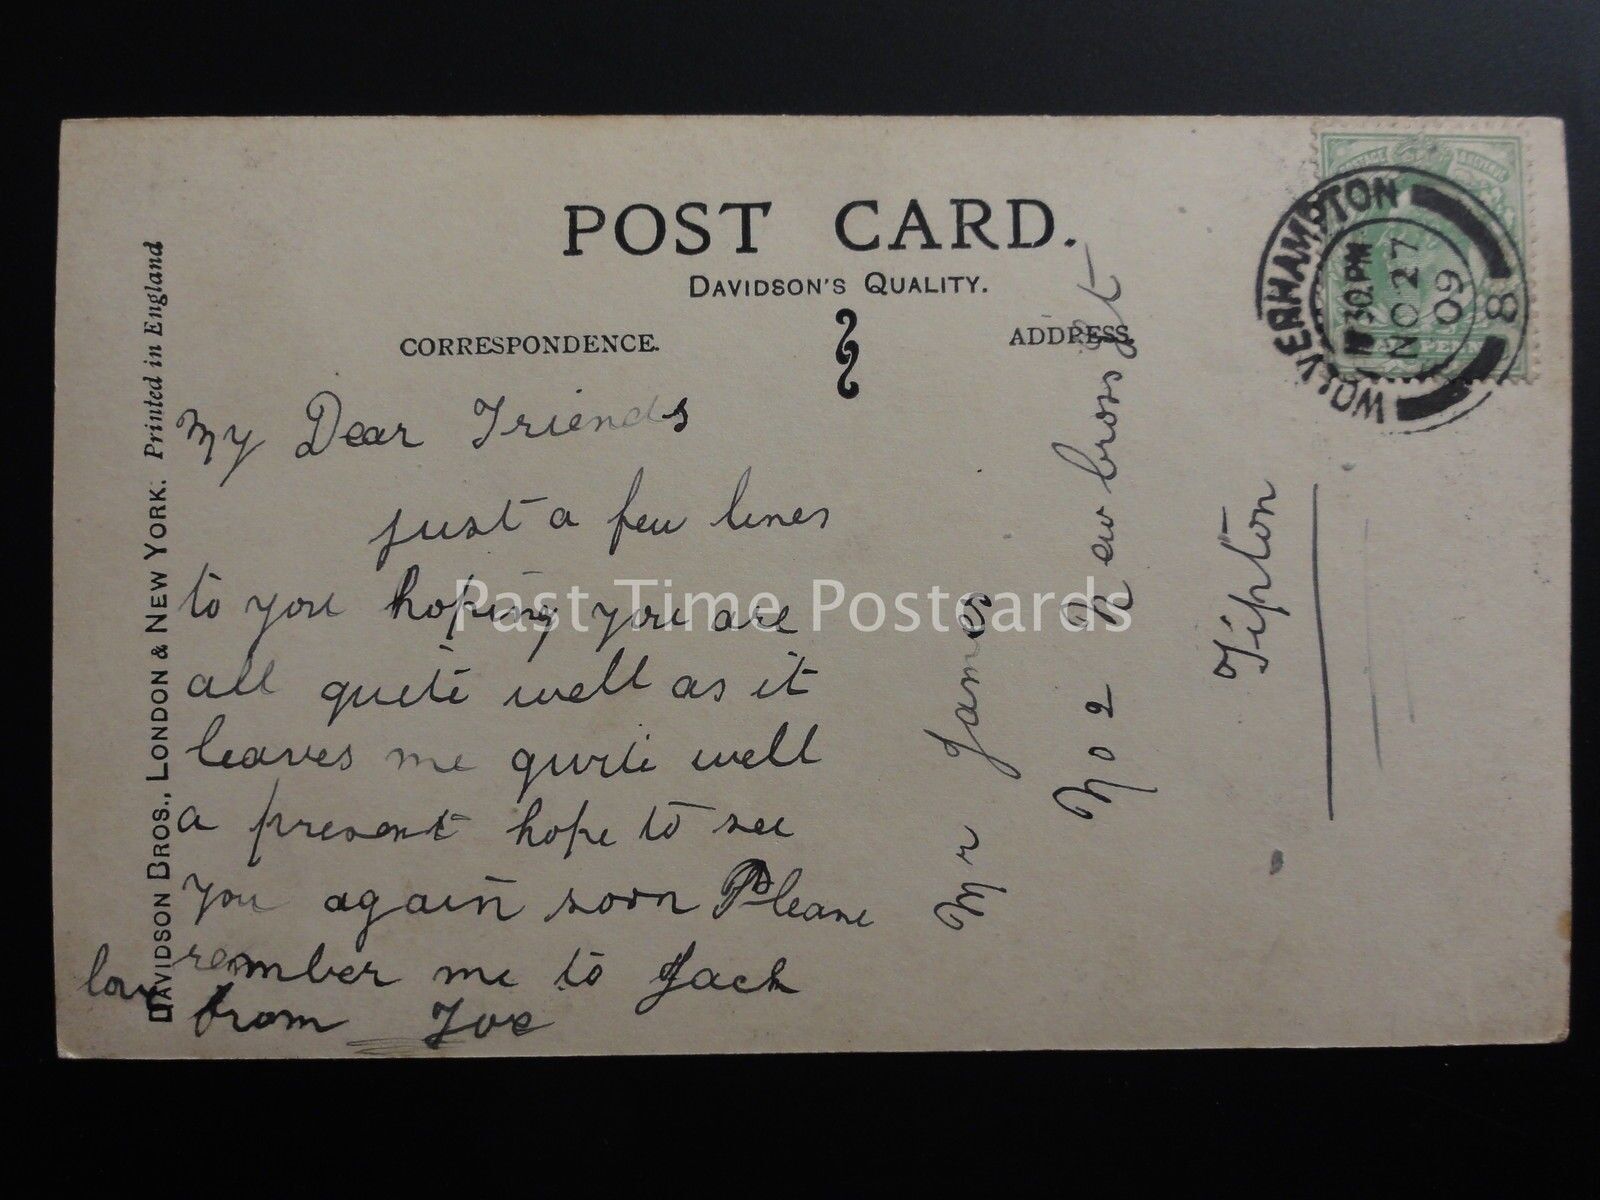 POST CARD.
DAVIDSON'S QUALITY.
CORRESPONDENCE.
ADDRESS.
DAVIDSON BROS., LONDON & NEW YORK. Printed in England
My Dear Friends
just a few lines
to you hoping you are
all quite well as it
leaves me quite well
a present hope to see
you again soon Please
remember me to Jack
love from Joe
Mr James
No 2 New cross st
Tipton
WOLVERHAMPTON
30 PM
NO 27
09
8
Past Time Postcards